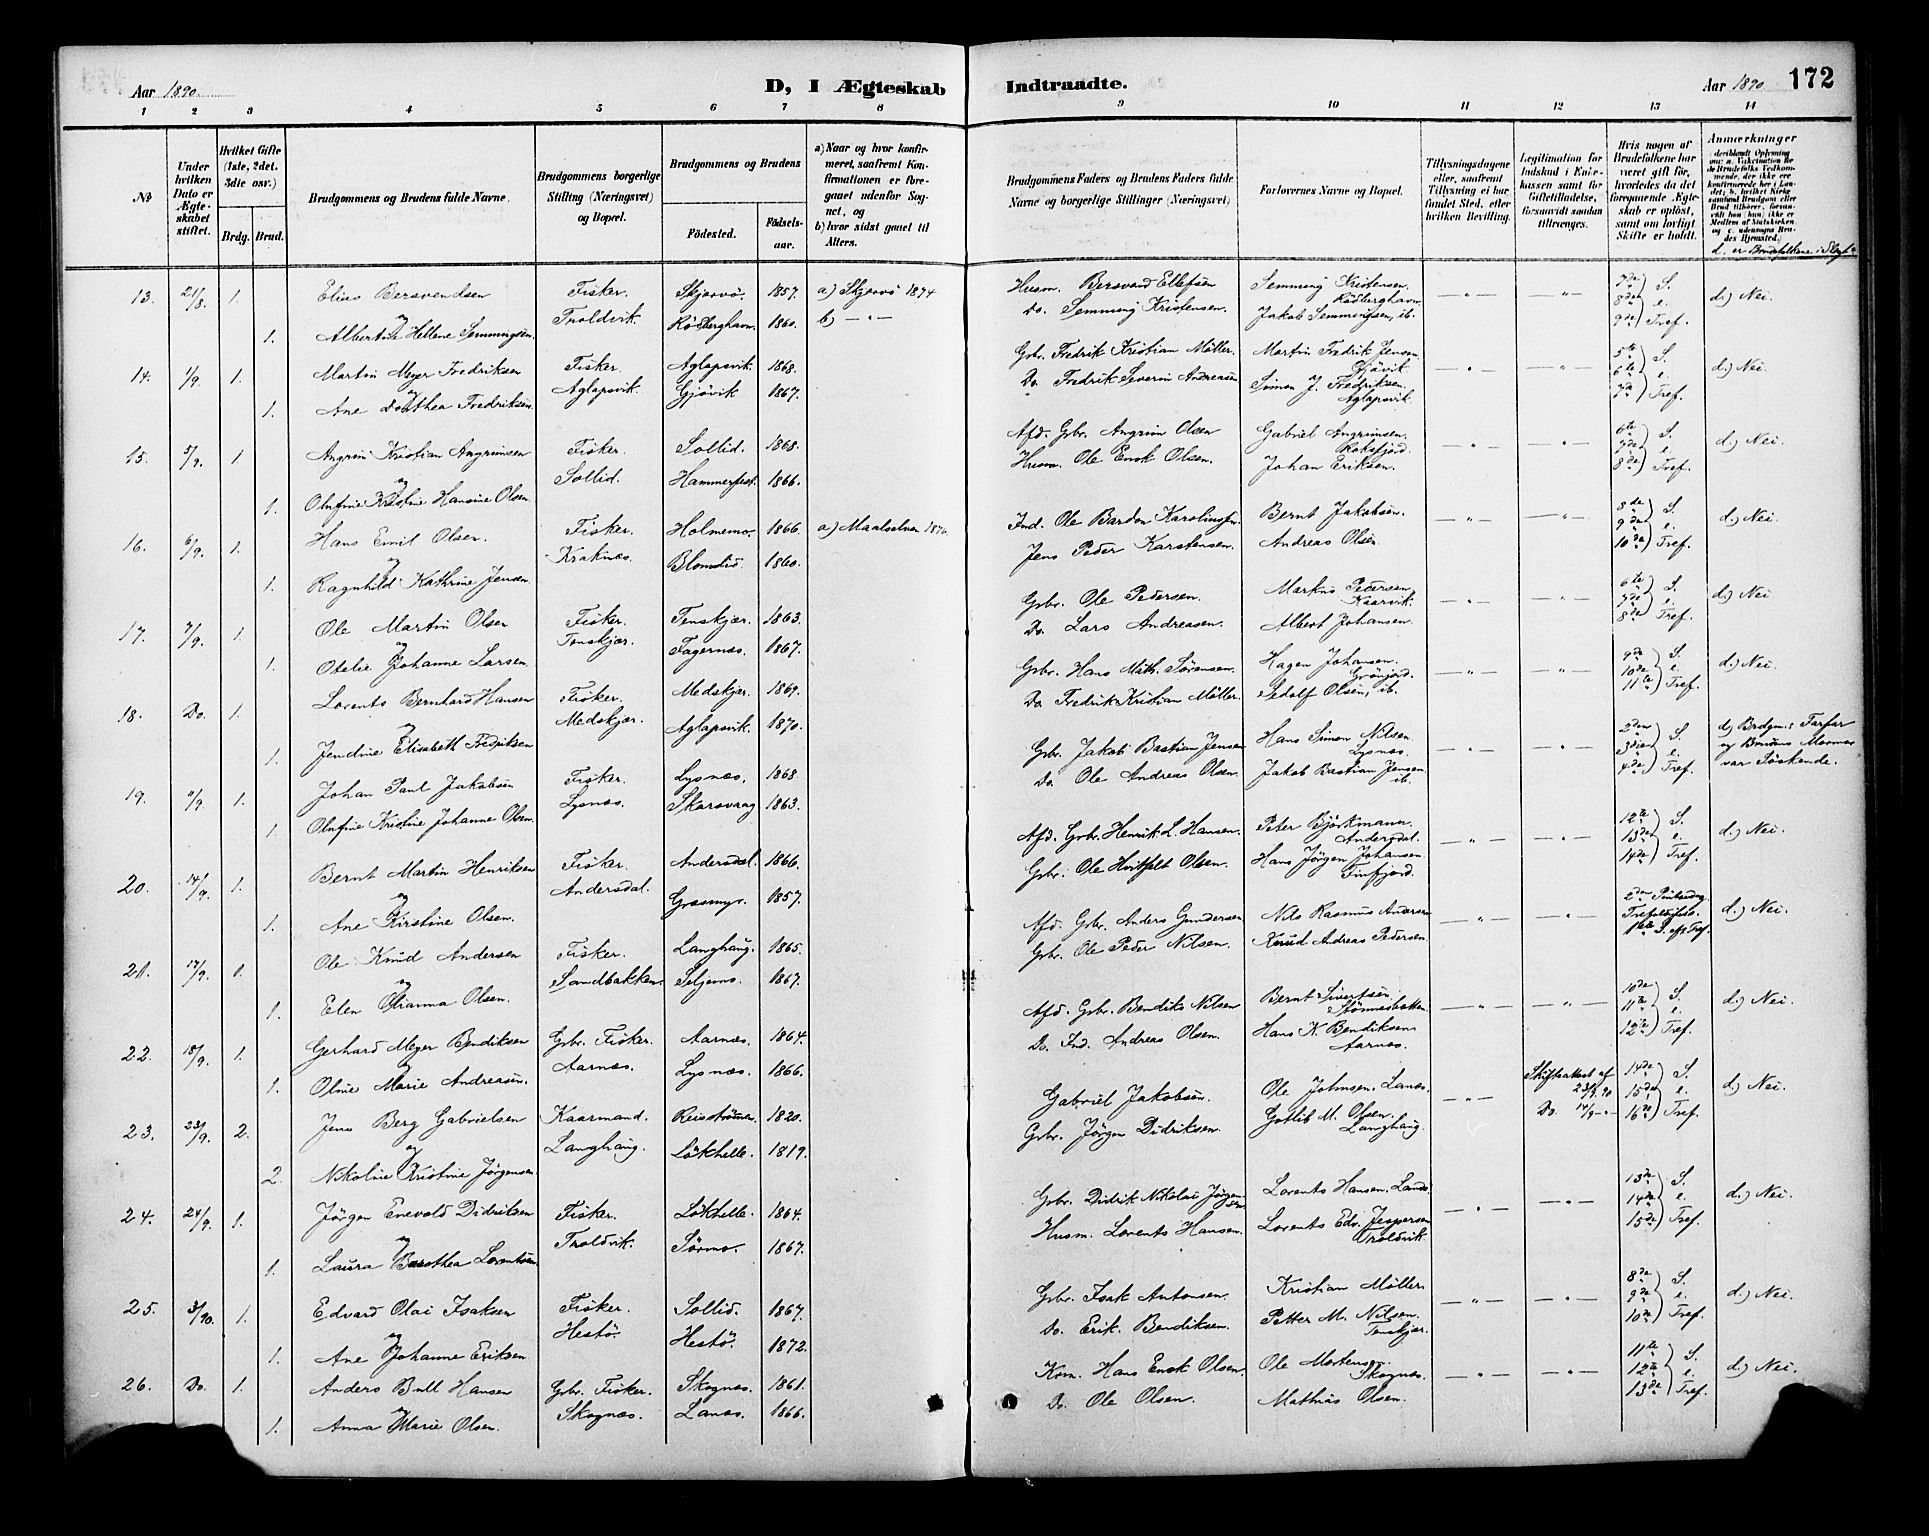 Aar 1890.
D, I Ægteskab Indtraadte.
Aar 1890 172
1 2 3 4 5 6 7 8 9 10 11 12 13 14
No
Under hvilken Dato er Ægteskabet stiftet.
Hvilket Gifte (1ste, 2det, 3die osv.)
Brdg. Brud.
Brudgommens og Brudens fulde Navne.
Brudgommens borgerlige Stilling (Næringsvei) og Bopæl.
Brudgommens og Brudens
Födested. Födselsaar.
a) Naar og hvor konfirmeret, saafremt Konfirmationen er foregaaet udenfor Sognet, og
b) hvor sidst gaaet til Alters.
Brudgommens Faders og Brudens Faders fulde Navne og borgerlige Stillinger (Næringsvei)
Forlovernes Navne og Bopæl.
Tillysningsdagene eller, saafremt Tillysning ei har fundet Sted, efter hvilken Bevilling.
Legitimation for Indskud i Enkekassen samt for Giftetilladelse, forsaavidt saadan tiltrænges.
Hvis nogen af Brudefolkene har været gift för, hvorledes da det foregaaende Ægteskab er oplöst, samt om lovligt Skifte er holdt.
Anmærkninger
d. er Brudefolkene i Slegt
13. 21/8. 1. Elias Bersvendsen Fisker. Skjervö. 1857. a) Skjervö 1874 Husm. Bersvend Ellefsen Semming Kristensen Rödberghavn 7de 8de 9de S. e. Tref. d.) Nei.
og 1. Albertine Hellene Semmingsen Troldvik. Rödberghavn. 1860. b) — " — Do. Semming Kristensen Jakob Semmingsen, ib.
14. 1/9. 1. Martin Meyer Fredriksen Fisker. Aglapsvik. 1868. Grbr. Fredrik Kristian Möller. Martin Fredrik Jensen Gjövik 5te 6te 7de S. e. Tref. d.) Nei.
og 1. Ane Dorthea Fredriksen Aglapsvik. Gjövik 1867. Do. Fredrik Severin Andreasen Simon J. Fredriksen. Aglapsvik.
15. 5/9. 1. Angrim Kristian Angrimsen Fisker. Sollid. 1868. Afd. Grbr. Angrim Olsen Gabriel Angrimsen. Roksfjord. 6te 7de 8de S. e. Tref. d.) Nei
og 1. Olufine Kristine Hansine Olsen Sollid. Hammerfest. 1866. Husm. Ole Enok Olsen. Johan Eriksen.
16. 6/9. 1. Hans Emil Olsen. Fisker. Holmemo. 1866. a) Maalselven Ind. Ole Bardon Karolinssen Bernt Jakobsen. 8de 9de 10de S. e. Tref. d.) Nei
og 1. Ragnhild Kathrine Jensen Kraknæs. Blomlid 1860. Jens Peder Karstensen. Andreas Olsen.
17. 7/9. 1. Ole Martin Olsen Fisker. Tenskjær. 1863. Grbr. Ole Pedersen. Markus Pedersen, Kaarvik. 6te 7de 8de S. e. Tref. d.) Nei
og 1. Otelie Johanne Larsen Tenskjær. Fagernæs. 1867. Do. Lars Andreasen. Albert Johansen.
18. Do. 1. Lorents Bernhard Hansen Fisker. Medskjær. 1869. Grbr. Hans Mith. Sørensen. Hagen Johansen. Grönjord. 9de 10de 11te S. e. Tref. d.) Nei
og 1. Jendine Elisabeth Fredriksen Medskjær. Aglapsvik. 1870. Do. Fredrik Kristian Möller. Sedolf Olsen, ib.
19. 11/9. 1. Johan Paul Jakobsen Fisker. Lysnæs. 1868 Grbr. Jakob Bastian Jensen Hans Simon Nilsen Lysnæs. 2den 3die 4de S. e. Tref. d) Brdgms Farfar og Brudens Mormor var Söskende.
1. Olufine Kristine Johanne Olsen. Lysnæs. Skarsvaag 1863. Do. Ole Andreas Olsen. Jakob Bastian Jensen ib.
20. 14/9. 1. Bernt Martin Henriksen Fisker. Andersdal. 1866. Afd. Grbr. Henrik L. Hansen. Peter Björkmann. Andersdal. 12te 13de 14de S. e. Tref. d.) Nei
og 1. Ane Kirstine Olsen. Andersdal. Græsmyr. 1857. Grbr. Ole Hvitfelt Olsen. Hans Jörgen Johansen Finfjord.
21. 17/9. 1. Ole Knud Andersen Fisker. Langhaug. 1865. Afd. Grbr. Anders Gundersen Nils Rasmus Andersen 2den Pintsedag, 1ste S. eft. Tref. d.) Nei.
og 1. Elen Olianna Olsen. Sandbakken. 1867. Grbr. Ole Peder Nilsen. Knud Andreas Pedersen
22. 18/9. 1. Gerhard Meyer Bendiksen Grbr. Fisker. Aarnæs. 1864. Afd. Grbr. Bendiks Nilsen Bernt Sivertsen 10de 11te 12te S. e. Tref. d.) Nei.
og 1. Oline Marie Andreasen. Aarnæs. Lysnæs. 1866. Do. Ind. Andreas Olsen. Hans K. Bendiksen Aarnæs.
23. 23/9. 2. Jens Berg Gabrielsen Kaarmand. Reisströmen. 1820. Gabriel Jakobsen. Ole Johnsen, Lanes. Skifteattest af 23/9.90 14de 15de 16de S. e. Tref. d.) Nei
og 2. Nikoline Kristine Jörgensen. Langhaug. Lökhelle. 1819. Grbr. Jörgen Didriksen. Gotlib M. Olsen. Langhaug. Do. 14/9 – " –
24. 24/9. 1. Jörgen Enevold Didriksen Fisker. Lökhelle. 1864. Grbr. Didrik Nikolai Jörgensen Lorents Hansen. Lanes 13de 14de 15de S. e. Tref. d.) Nei
og 1. Laura Berothea Lorentsen Troldvik. Sörmo. 1867. Husm. Lorents Hansen. Lorents Edv. Jespersen Troldvik
25. 3/90. 1. Edvard Olai Isaksen Fisker. Sollid. 1867. Grbr. Isak Antonsen. Kristian Möller. 8de 9de 10de S. e. Tref. d.) Nei.
og 1. Ane Johanne Eriksen Hestö. Hestö. 1872. Do. Erik Bendiksen. Petter M. Nilsen. Tenskjær.
26. Do. 1. Anders Bull Hansen Grbr. Fisker. Skognæs. 1861. Krm. Hans Enok Olsen. Ole Mortensen Skognæs. 11te 12te 13de S. e. Tref. d.) Nei.
og 1. Anna Marie Olsen. Skognæs. Lanæs. 1866. Do. Ole Olsen. Mathias Olsen.